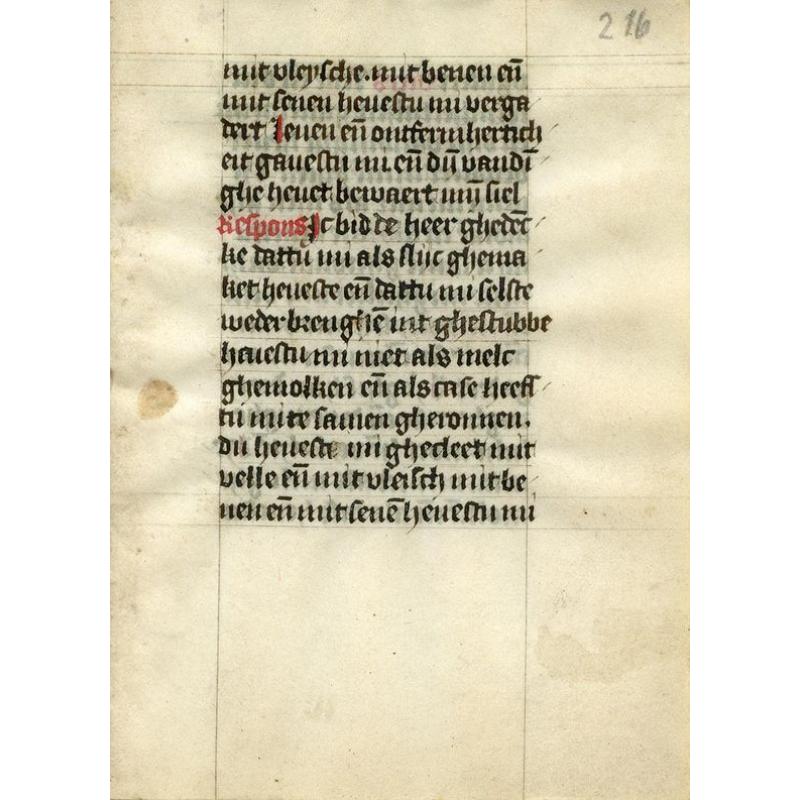 216
mit vleysche. mit benen en̄
mit senen heuestu mi verga
dert Leuen en̄ ontfermhertich
eit gauestu mi. en̄ dijn vandī
ghe heuet bewaert mijn siel
Respons Ic bidde heer ghedēc
ke dattu mi als slijc ghema
ket heueste en̄ dattu mi selste
wederbrenghē int ghestubbe
heuestu mi niet als melc
ghemolken en̄ als case heefs
tu mi te samen gheronnen.
du heueste mi ghecleet mit
velle en̄ mit vleisch mit be
nen en̄ mit senē heuestu mi